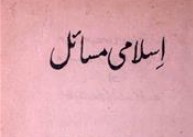 اِسلامی مسائل